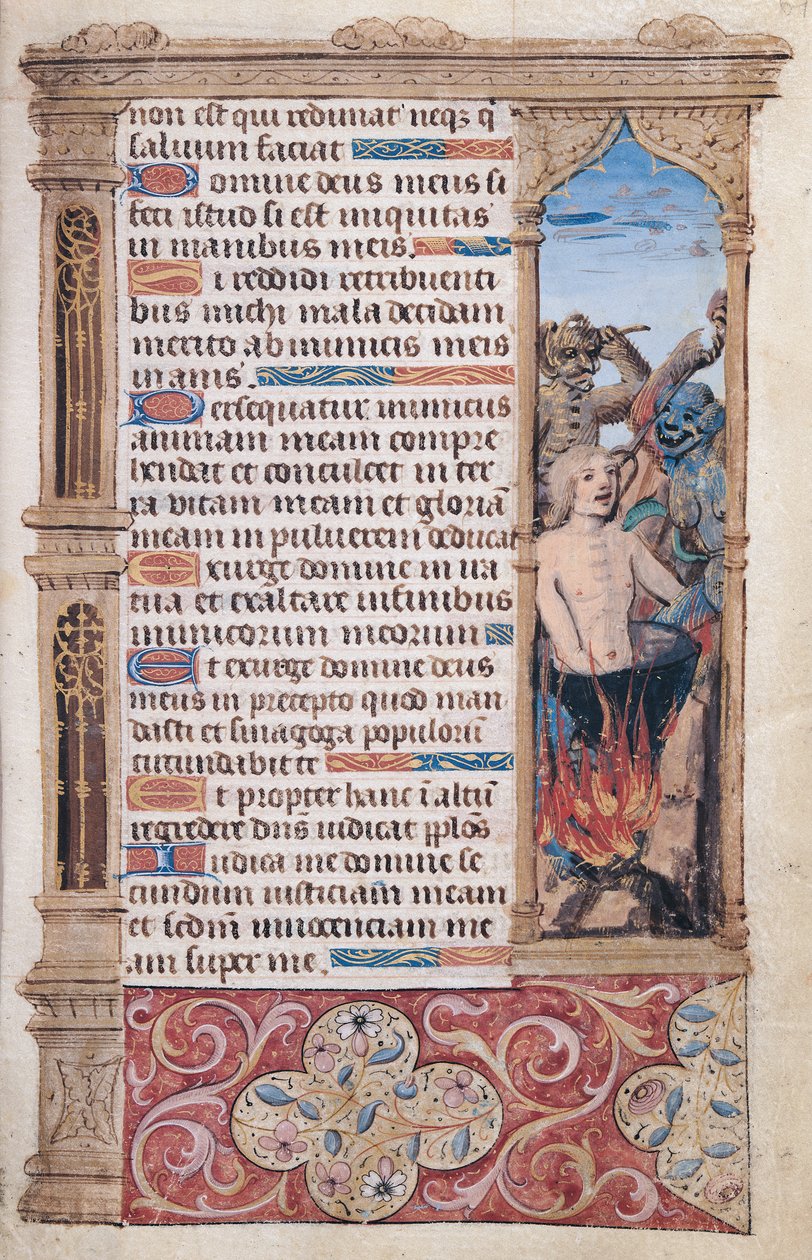 non est qui redimat neqz q
saluum faciat
Domine deus meus si
feci istud si est iniquitas
in manibus meis.
Si reddidi retribuenti
bus michi mala decidam
merito ab inimicis meis
inanis.
Persequatur inimicus
animam meam compre
hendat et conculcet in ter
ra vitam meam et gloriā
meam in puluerem deducat
Exurge domine in ira
tua et exaltare in finibus
inimicorum meorum
Et exurge domine deus
meus in precepto quod man
dasti et sinagoga populorū
circundabit te
Et propter hanc ī altū
regredere dn̄s iudicat pplōs
Iudica me domine se
cundum iusticiam meam
et scdm̄ innocenciam me
am super me.